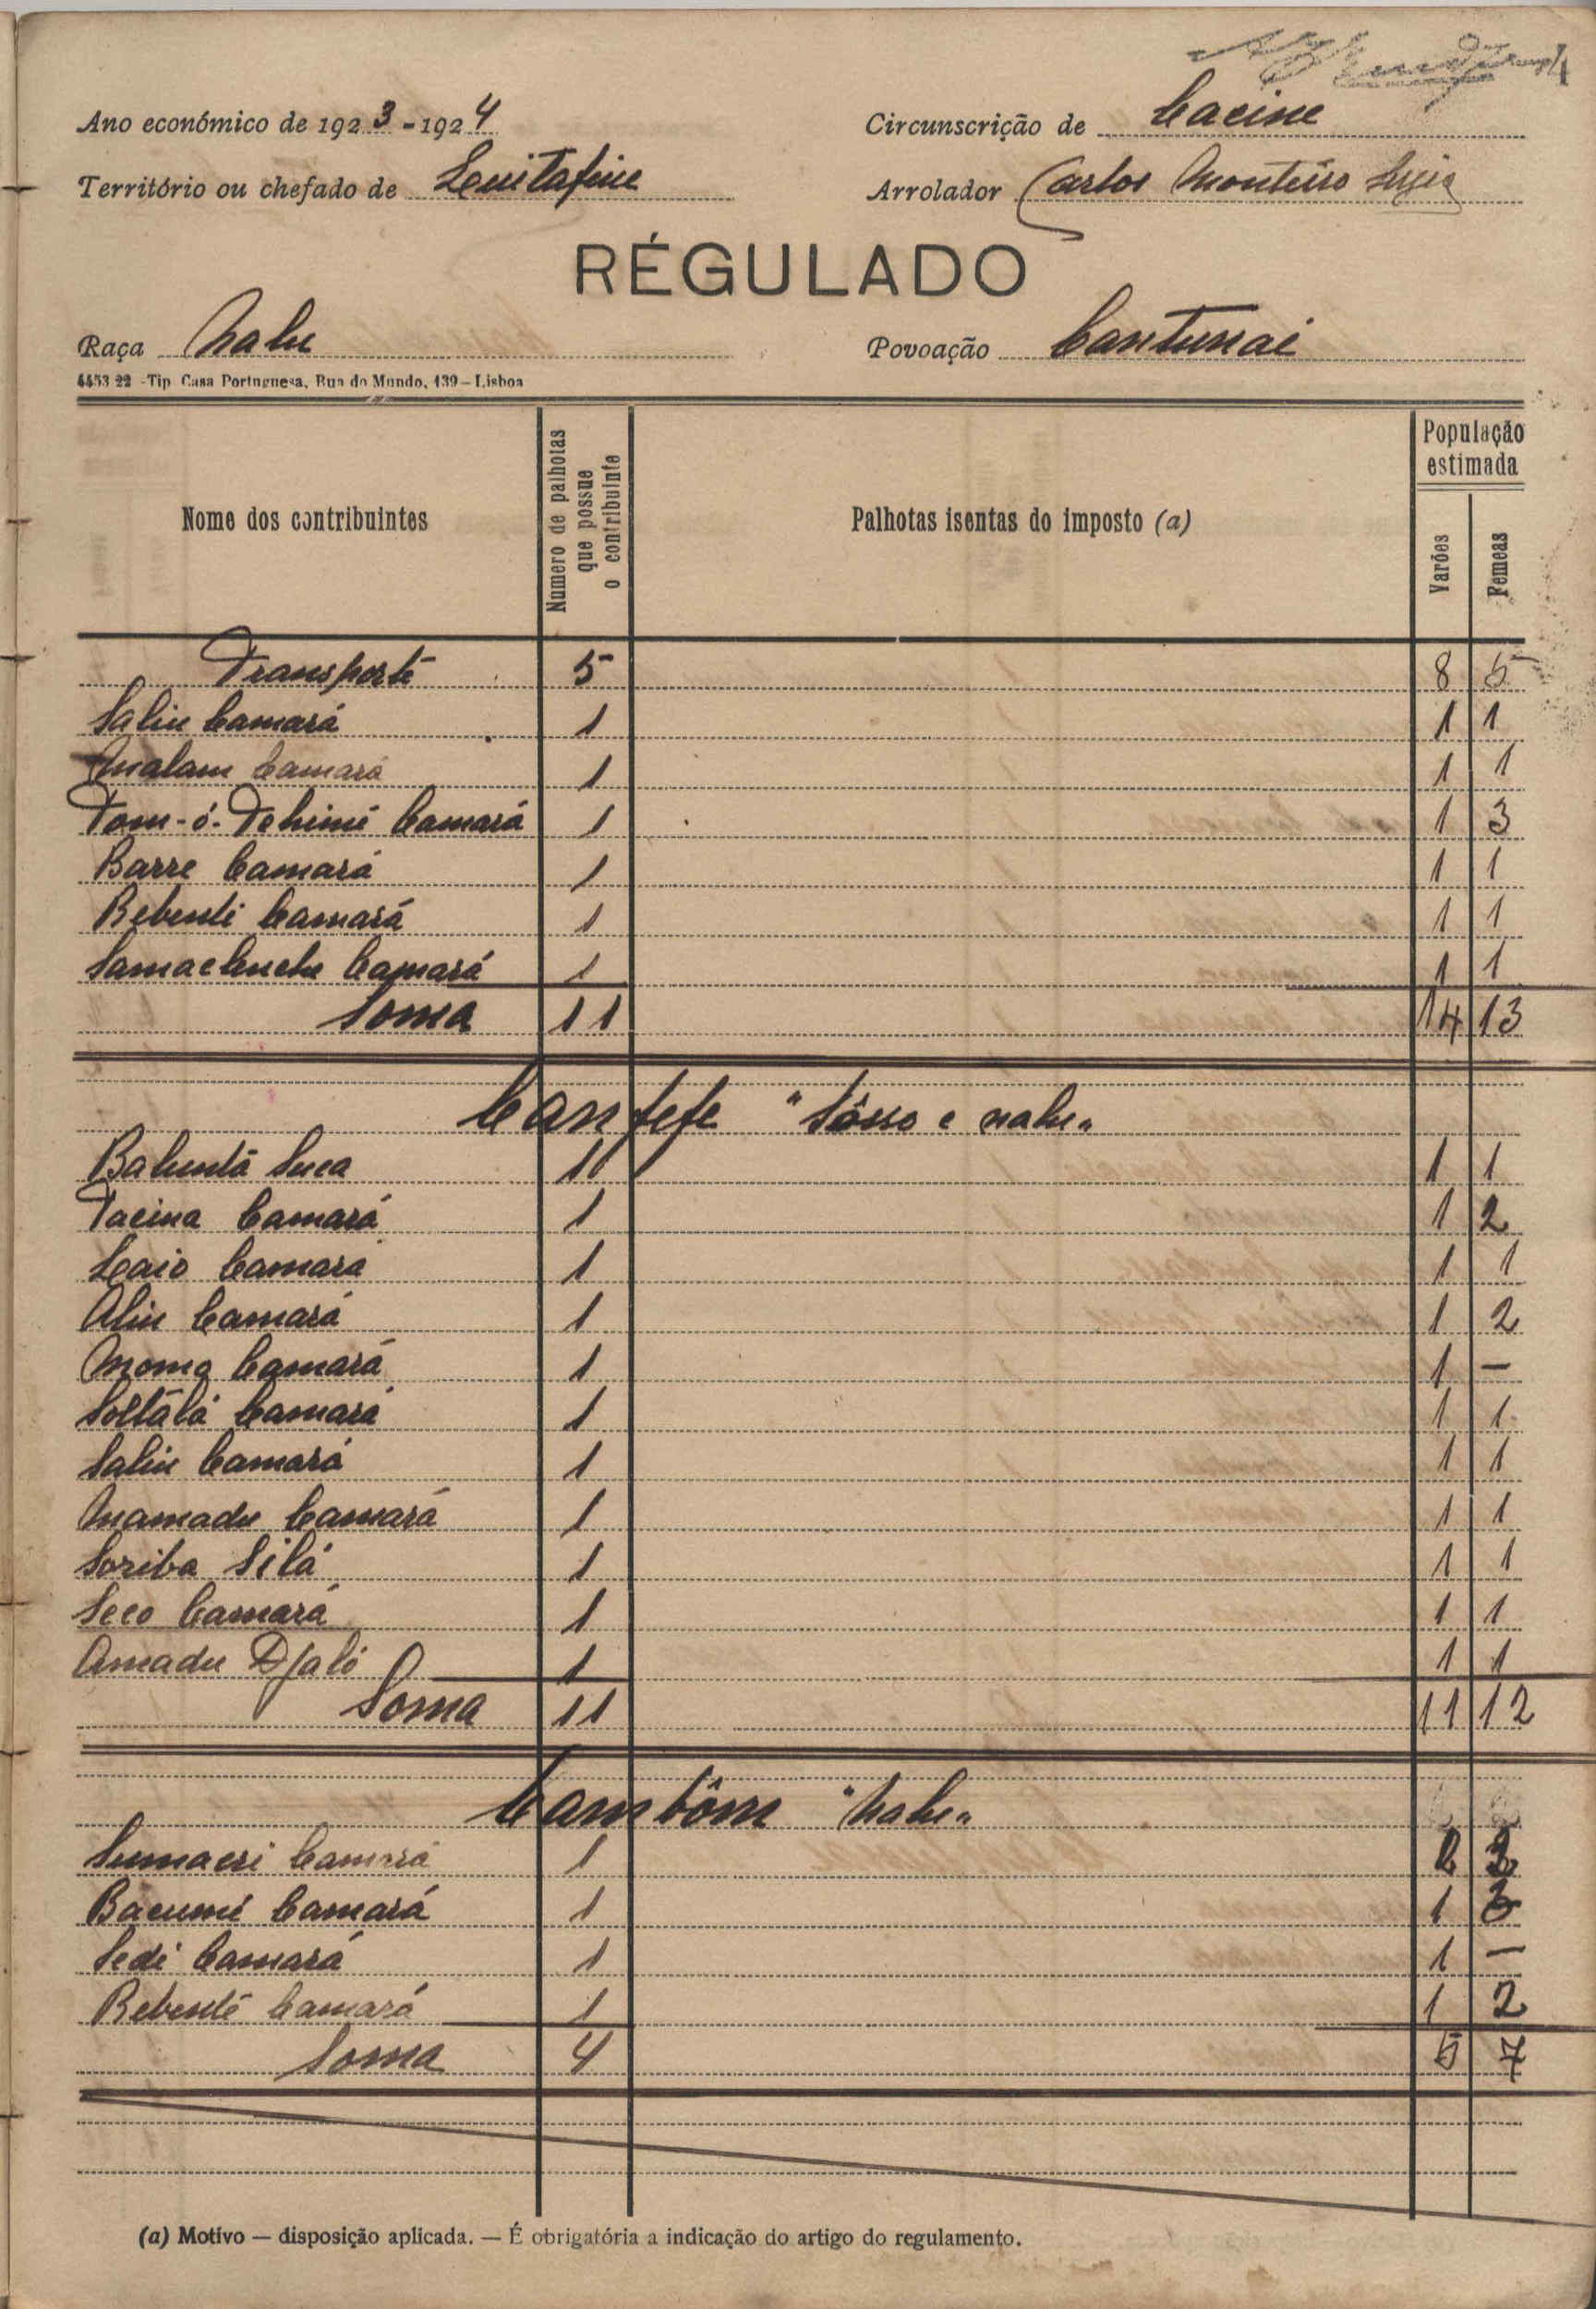 Ano económico de 1923-1924
Circunscrição de Cacine
Território ou chefado de
Arrolador Carlos Monteiro
RÉGULADO
Raça Nalu
Povoação Cantunai
4453 22 -Tip Casa Portuguesa, Rua do Mundo, 139 – Lisboa
Nome dos contribuintes
Numero de palhotas que possue o contribuinte
Palhotas isentas do imposto (a)
População estimada
Varões
Femeas
Transporte 5 8 5
Saliu Camará 1 1 1
Malam Camará 1 1 1
Tom-ó-Tchimi Camará 1 1 3
Barre Camará 1 1 1
Bebenli Camará 1 1 1
Camará 1 1 1
Soma 11 14 13
Canfefe "Sôsso e nalu"
Suca 1 1 1
Tacina Camará 1 1 2
Laio Camará 1 1 1
Aliu Camará 1 1 2
Momo Camará 1 1 –
Camará 1 1 1
Saliu Camará 1 1 1
Mamadu Camará 1 1 1
Soriba Silá 1 1 1
Seco Camará 1 1 1
Amadu Djaló 1 1 1
Soma 11 11 12
Cambôm "Nalu"
Camará 1 2 2
Camará 1 1 3
Sedi Camará 1 1 –
Camará 1 1 2
Soma 4 5 7
(a) Motivo — disposição aplicada. — É obrigatória a indicação do artigo do regulamento.